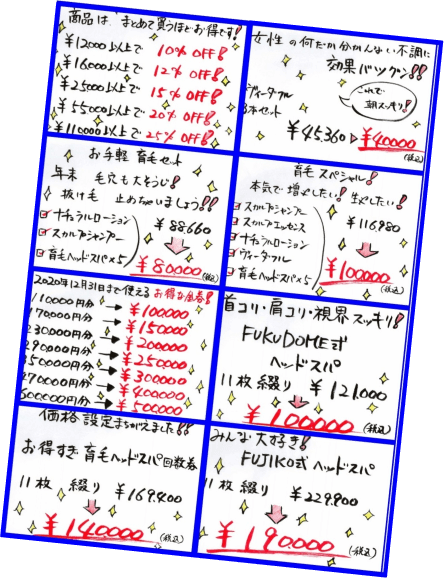 商品は、まとめて買うほどお得です!
¥12000以上で 10% OFF!
¥16000以上で 12% OFF!
¥25000以上で 15% OFF!
¥55000以上で 20% OFF!
¥110000以上で 25% OFF!
女性の何だか分かんない不調に
効果バツグン!!
ヴィータフル
3本セット
これで
朝スッキリ!
¥45,360 ¥40000
(税込)
お手軽 育毛セット
年末 毛穴も大そうじ!
抜け毛 止めちゃいましょう!!
ナチュラルローション
スカルプシャンプー
育毛ヘッドスパ×5
¥88,660
¥80000(税込)
育毛スペシャル!
本気で増やしたい!生やしたい!
スカルプシャンプー
スカルプエッセンス
ナチュラルローション
ヴィータフル
育毛ヘッドスパ×5
¥116,980
¥100000
(税込)
2020年12月31日まで使える お得な金券!
110000円分 ¥100000
170000円分 ¥150000
230000円分 ¥200000
290000円分 ¥250000
350000円分 ¥300000
470000円分 ¥400000
600000円分 ¥500000
首コリ・肩コリ・視界スッキリ!
FUKUDOME式
ヘッドスパ
11枚綴り ¥121,000
¥100000
(税込)
価格設定まちがえました!!
お得すぎ 育毛ヘッドスパ回数券
11枚 綴り ¥169,400
¥140000
(税込)
みんな大好き!
FUJIKO式ヘッドスパ
11枚 綴り ¥229,900
¥190,000
(税込)